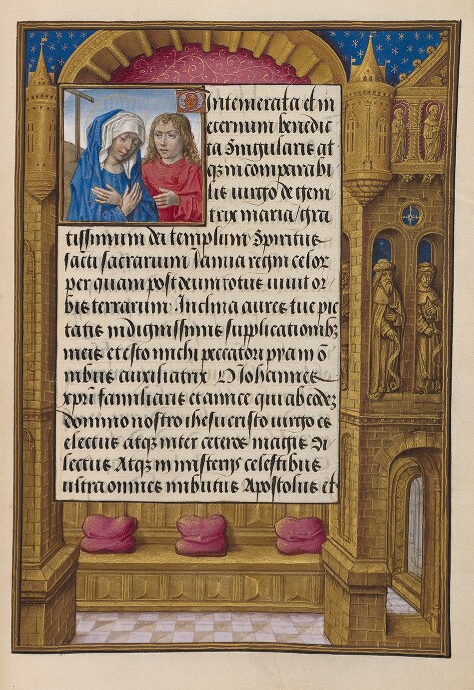 O Intemerata et in
eternum benedic
ta Singularis at
qz incomparabi
lis virgo dei gem
trix maria/gra
tissimum dei templum Spiritus
sacti sacrarium Ianua regni celor
per quam post deum totus viuit or
bis terrarum Inclina aures tue pie
tatis indignissimis supplicationibz
meis et esto michi peccatori pya in o
mnibus auxiliatrix O Iohannes
xpri familiaris et amice qui ab eodez
domino nostro ihesu cristo virgo es
electus atqz inter ceteros magis di
lectus Atqz in misterijs celestibus
ultra omnes imbutus Apostolus et